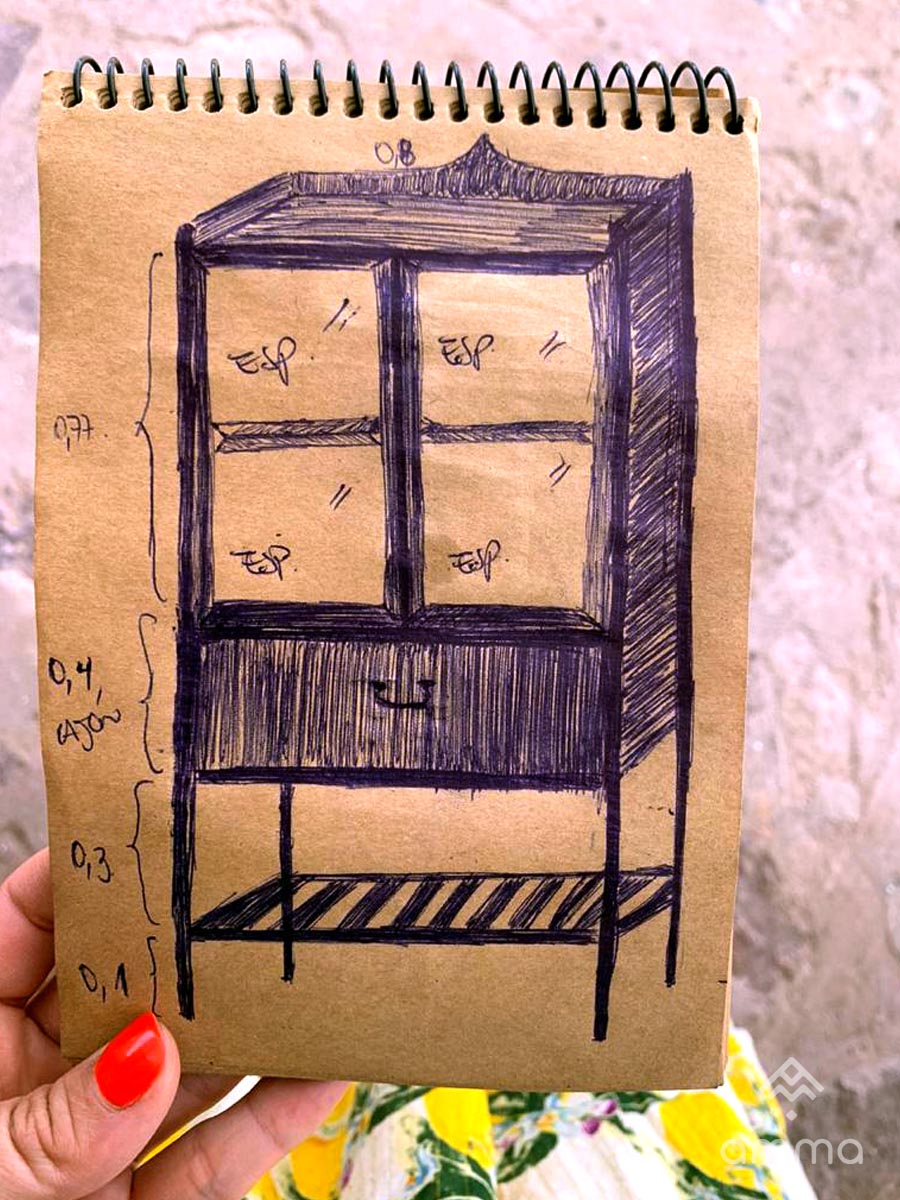 0,8
ESP.
ESP.
0,77.
ESP.
ESP.
0,4,
CAJÓN
0,3
0,1
amma